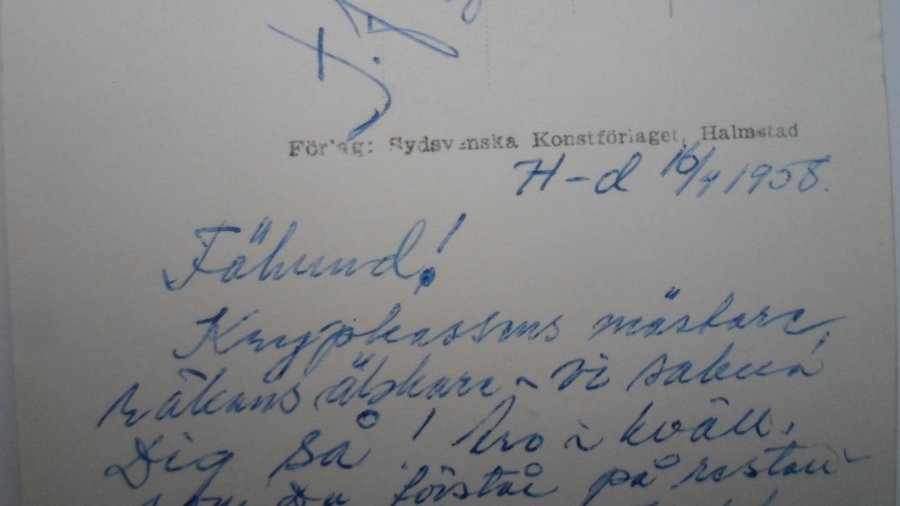 Förlag: Sydsvenska Konstförlaget, Halmstad
H-d 16/4 1958.
Fähund!
Krypkassens mästare,
räkans älskare - vi sakna
Dig så! Äro i kväll,
som Du förstår på restau-